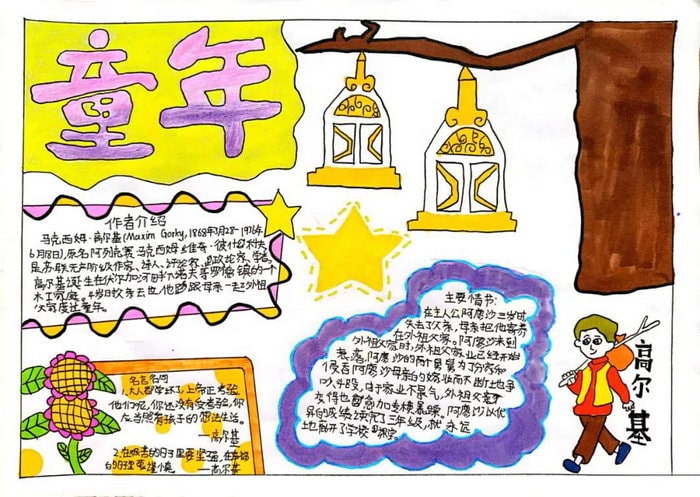 童年
作者介绍
马克西姆·高尔基(Maxim Gorky,1868年3月28-1936年
6月18日),原名阿列克赛·马克西姆维奇·彼什科夫
是苏联无产阶级作家、诗人、评论家、政论家、学者。
高尔基诞生在伏尔加河畔下诺夫哥罗德镇的一个
木工家庭。4岁时父亲去世,他跟母亲一起在外祖
父家度过童年。
主要情节:
在主人公阿廖沙三岁时
失去了父亲,母亲把他寄养
在外祖父家。阿廖沙来到
外祖父家时,外祖父家业已经开始
衰落,阿廖沙的两个舅舅为了分家和
侵吞阿廖沙母亲的嫁妆而不断地争
吵、斗殴。由于家业不景气,外祖父变
得也愈加专横暴躁。阿廖沙以优
异的成绩读完了三年级,就永远
地离开了学校课堂。
名言名句
1.大人都学坏了,上帝正考验
他们呢,你还没有受考验,你
应当照着孩子的想法生活。
——高尔基
2.在
的日子里要坚强,在幸福
的日子里要谨慎。
——高尔基
高尔基